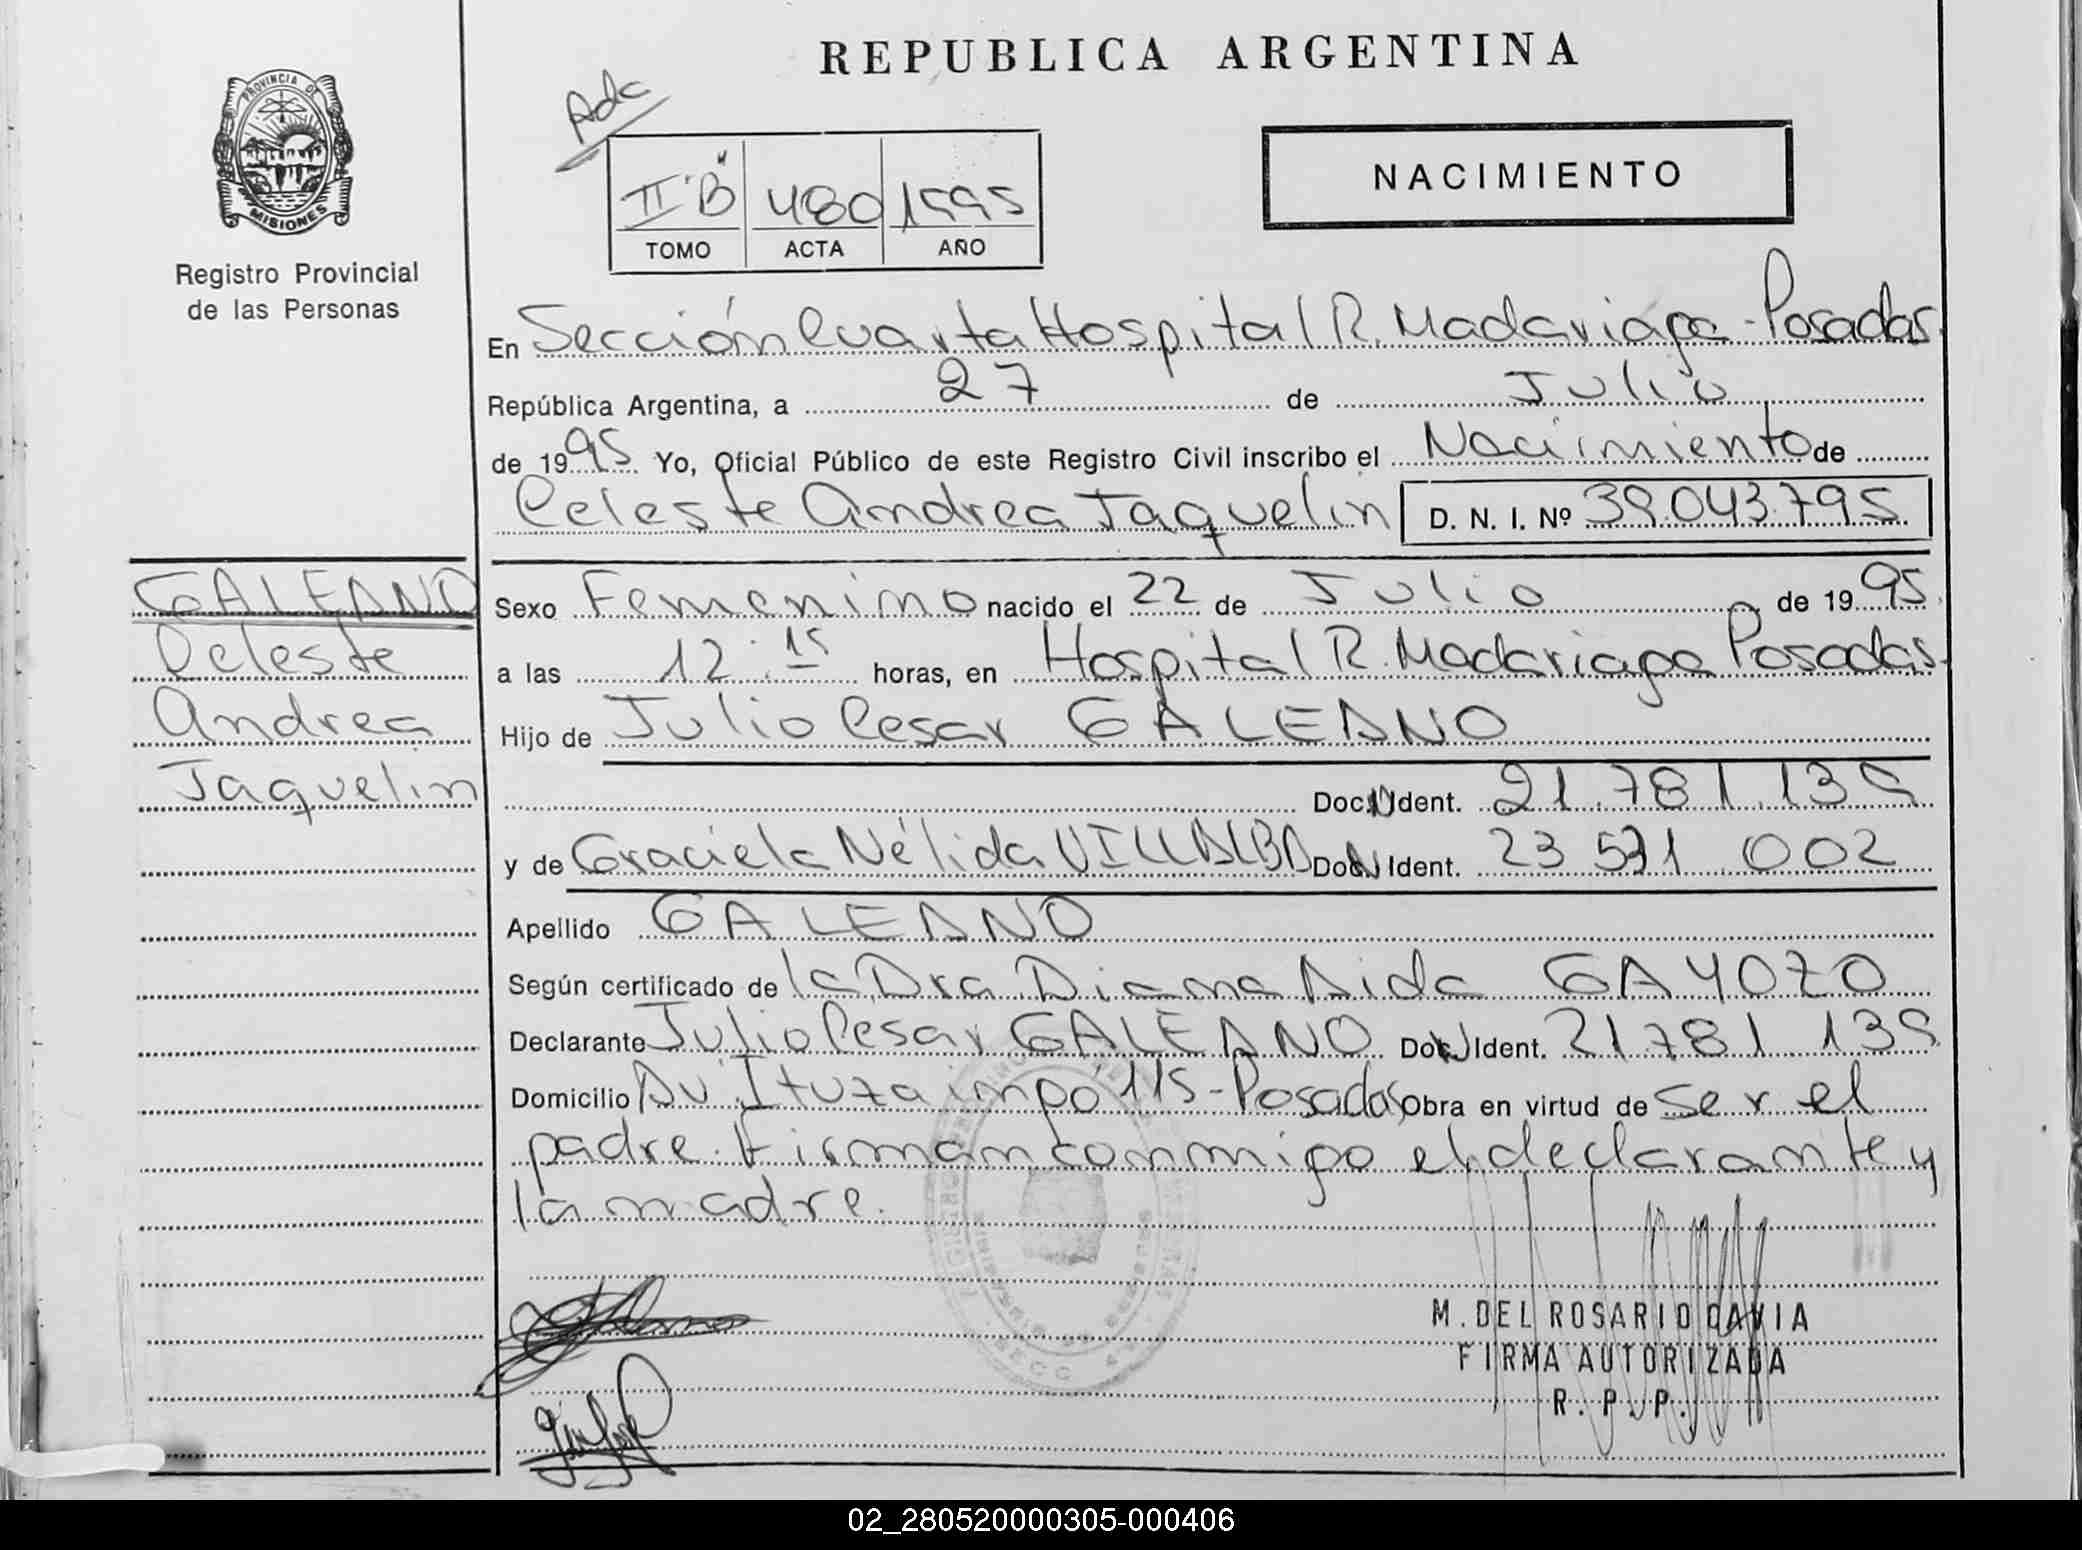 REPUBLICA ARGENTINA
PROVINCIA DE
MISIONES
Registro Provincial
de las Personas
Adc
II "B" 480 1995
TOMO ACTA AÑO
NACIMIENTO
En Sección Cuarta Hospital R. Madariaga - Posadas.
República Argentina, a 27 de Julio
de 1995 Yo, Oficial Público de este Registro Civil inscribo el Nacimiento de
Celeste Andrea Jaquelin D. N. I. Nº 39.043.795
GALEANO
Celeste
Andrea
Jaquelin
Sexo Femenino nacido el 22 de Julio de 1995.
a las 12:15 horas, en Hospital R. Madariaga Posadas.
Hijo de Julio Cesar GALEANO
Doc. N Ident. 21.781.139
y de Graciela Nélida VILLALBA Doc. N Ident. 23 531 002
Apellido GALEANO
Según certificado de la Dra Diana Aida GAYOZO
Declarante Julio Cesar GALEANO Doc. N Ident. 21781 139
Domicilio Av. Ituzaimpó 115 - Posadas Obra en virtud de ser el
padre. Firman conmigo el declarante y
la madre.
M. DEL ROSARIO DAVIA
FIRMA AUTORIZADA
R. P. P.
02_280520000305-000406